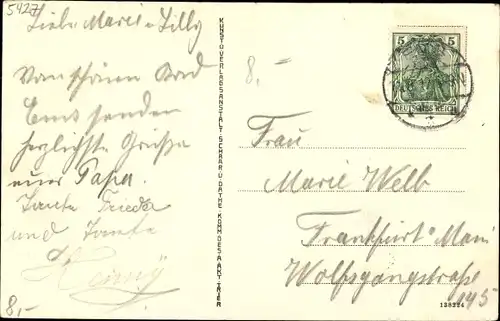 5427
Liebe Marie u. Lilly
Vom schönen Bad
Ems senden
herzlichste Grüße
euer Papa.
Tante Frieda
und Tante
Henny
8,-
KUNST U. VERLAGSANSTALT SCHAAR U. DATHE KOMM. GES. A. AKT. TRIER
8,-
5 5
DEUTSCHES REICH
Frau
Marie Welb
Frankfurt a Main
Wolfsgangstraße
145